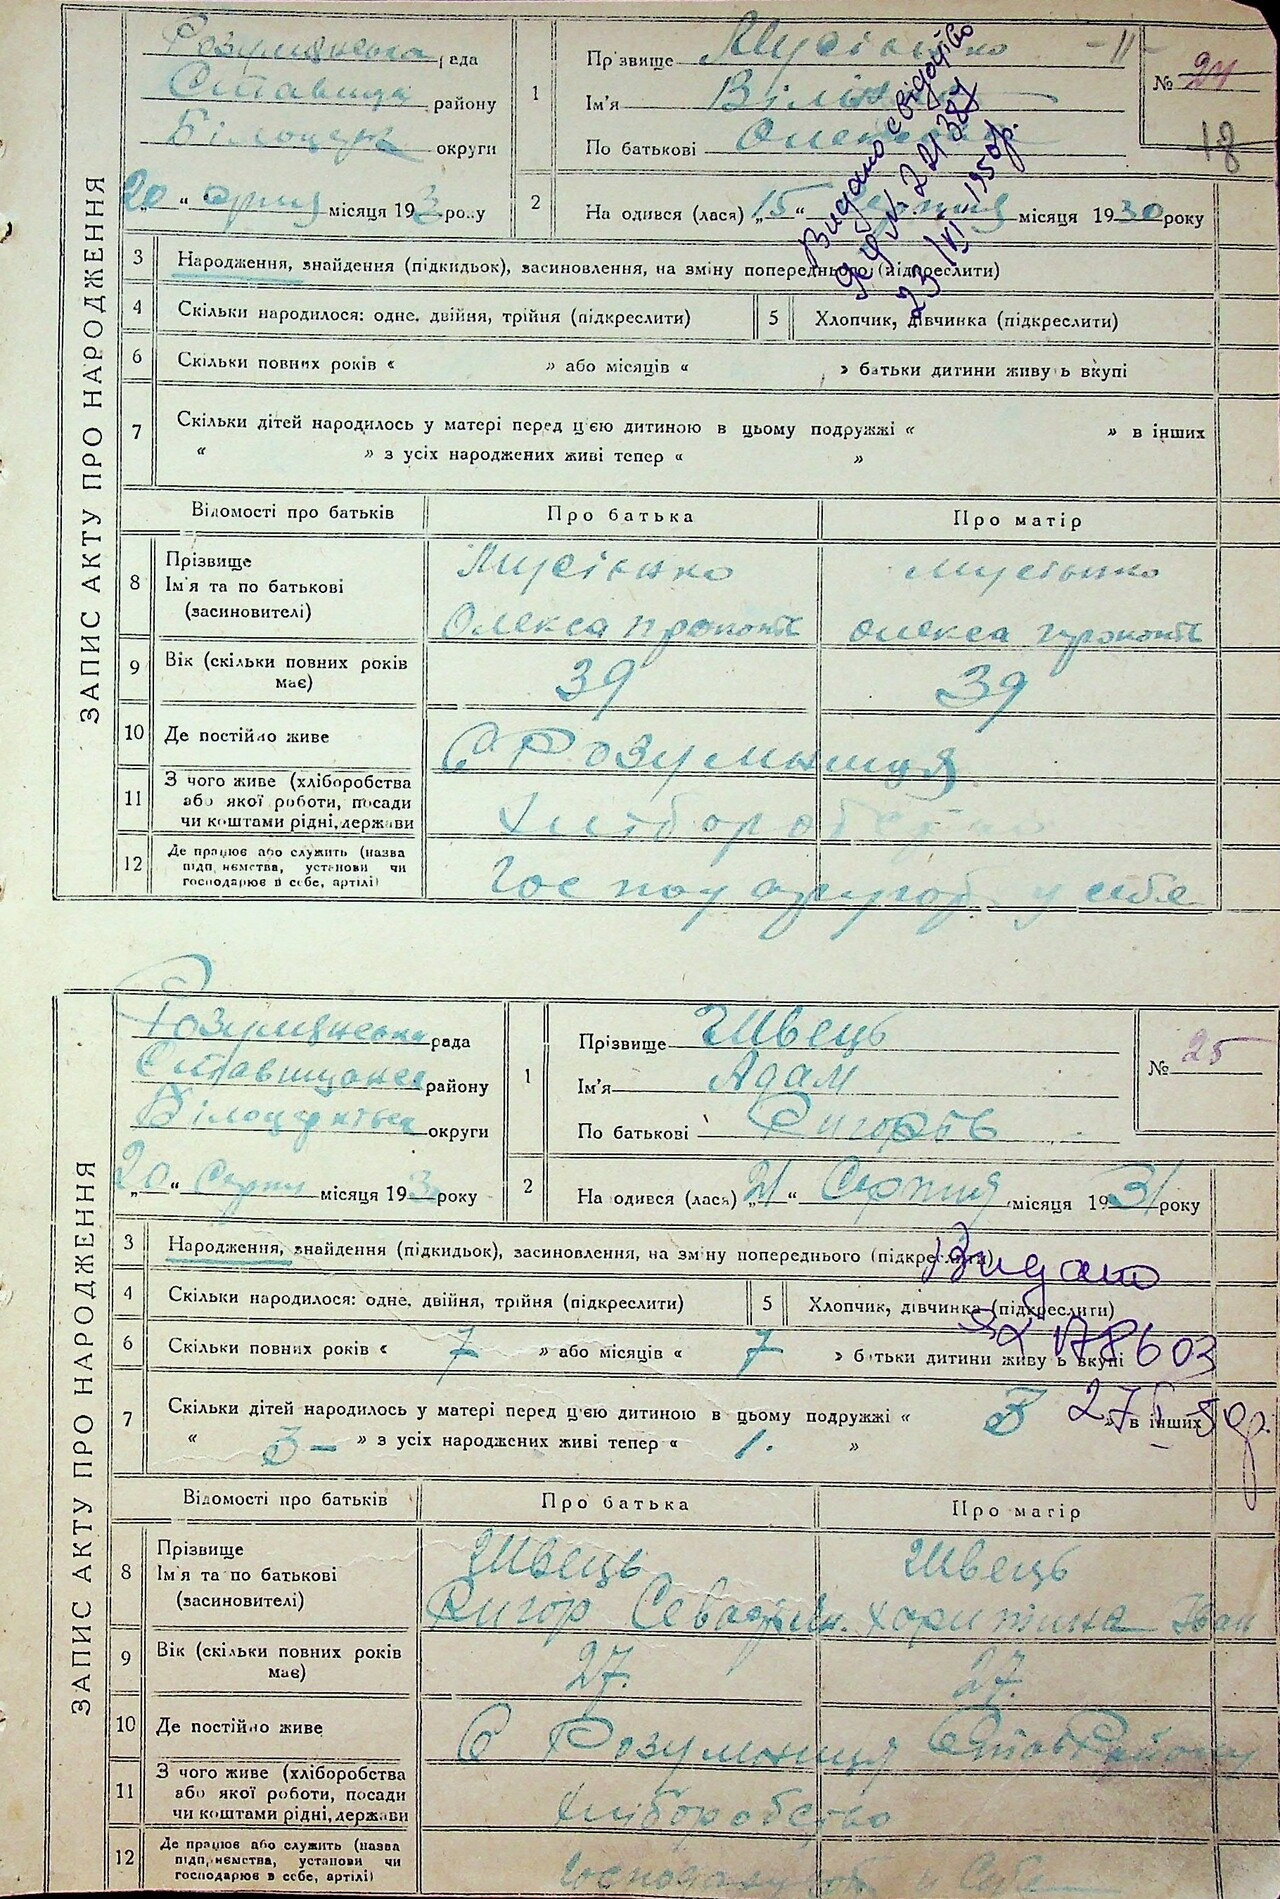 ЗАПИС АКТУ ПРО НАРОДЖЕННЯ
Розумянська рада
Ставища району
Білоцерк округи
„20“ серпня місяця 193 року
1
Прізвище Мусієнко
Ім'я
По батькові
-11-
№ 24
18
2
Народився (лася) „15“ серпня місяця 1930 року
Видано свідоцтво
№ 221384
23/VI 1950р.
3 Народження, знайдення (підкидьок), засиновлення, на зміну попереднього (підпреслити)
4 Скільки народилося: одне, двійня, трійня (підкреслити)
5 Хлопчик, дівчинка (підкреслити)
6 Скільки повних років « » або місяців « » батьки дитини живуть вкупі
7 Скільки дітей народилось у матері перед цією дитиною в цьому подружжі « » в інших
« » з усіх народжених живі тепер « »
Відомості про батьків Про батька Про матір
8 Прізвище
Ім'я та по батькові
(засиновителі)
Мусієнко
Олекса Прокопів
Мусієнко
Олекса Прокопів
9 Вік (скільки повних років має)
39
39
10 Де постійно живе
С Розумниця
11 З чого живе (хліборобства
або якої роботи, посади
чи коштами рідні, держави
Хлібороб
12 Де працює або служить (назва
підприємства, установи чи
господарює в себе, артілі)
у себе
ЗАПИС АКТУ ПРО НАРОДЖЕННЯ
Розумянська рада
Ставищанск району
Білоцерківськ округи
„20“ Серпн місяця 193 року
1
Прізвище Швець
Ім'я Адам
По батькові Ригорів
№ 25
2
Народився (лася) „21“ Серпня місяця 1931 року
3 Народження, знайдення (підкидьок), засиновлення, на зміну попереднього (підкреслити)
Видано
178603
27
4 Скільки народилося: одне, двійня, трійня (підкреслити)
5 Хлопчик, дівчинка (підкреслити)
6 Скільки повних років « 7 » або місяців « 7 » батьки дитини живуть вкупі
7 Скільки дітей народилось у матері перед цією дитиною в цьому подружжі « 3 » в інших
« 3 – » з усіх народжених живі тепер « 1. »
Відомості про батьків Про батька Про матір
8 Прізвище
Ім'я та по батькові
(засиновителі)
Швець
Ригор
Швець
Харитина Іван
9 Вік (скільки повних років має)
27.
27.
10 Де постійно живе
С Розумниця Став Району
11 З чого живе (хліборобства
або якої роботи, посади
чи коштами рідні, держави
Хліборобство
12 Де працює або служить (назва
підприємства, установи чи
господарює в себе, артілі)